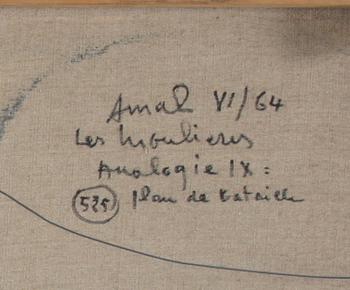 Amal VI/64
Les Moulieres
Analogie IX:
535 Plan de bataille